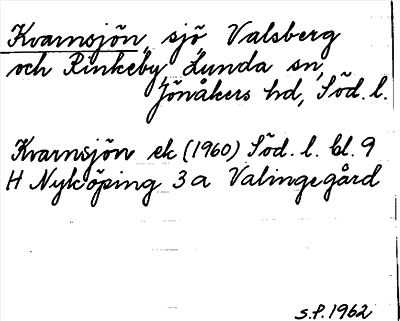 Kvarnsjön, sjö Valsberg
och Rinkeby, Lunda sn,
Jönåkers hd, Söd. l.
Kvarnsjön ek (1960) Söd. l. bl. 9
H Nyköping 3a Valingegård
S.P. 1962